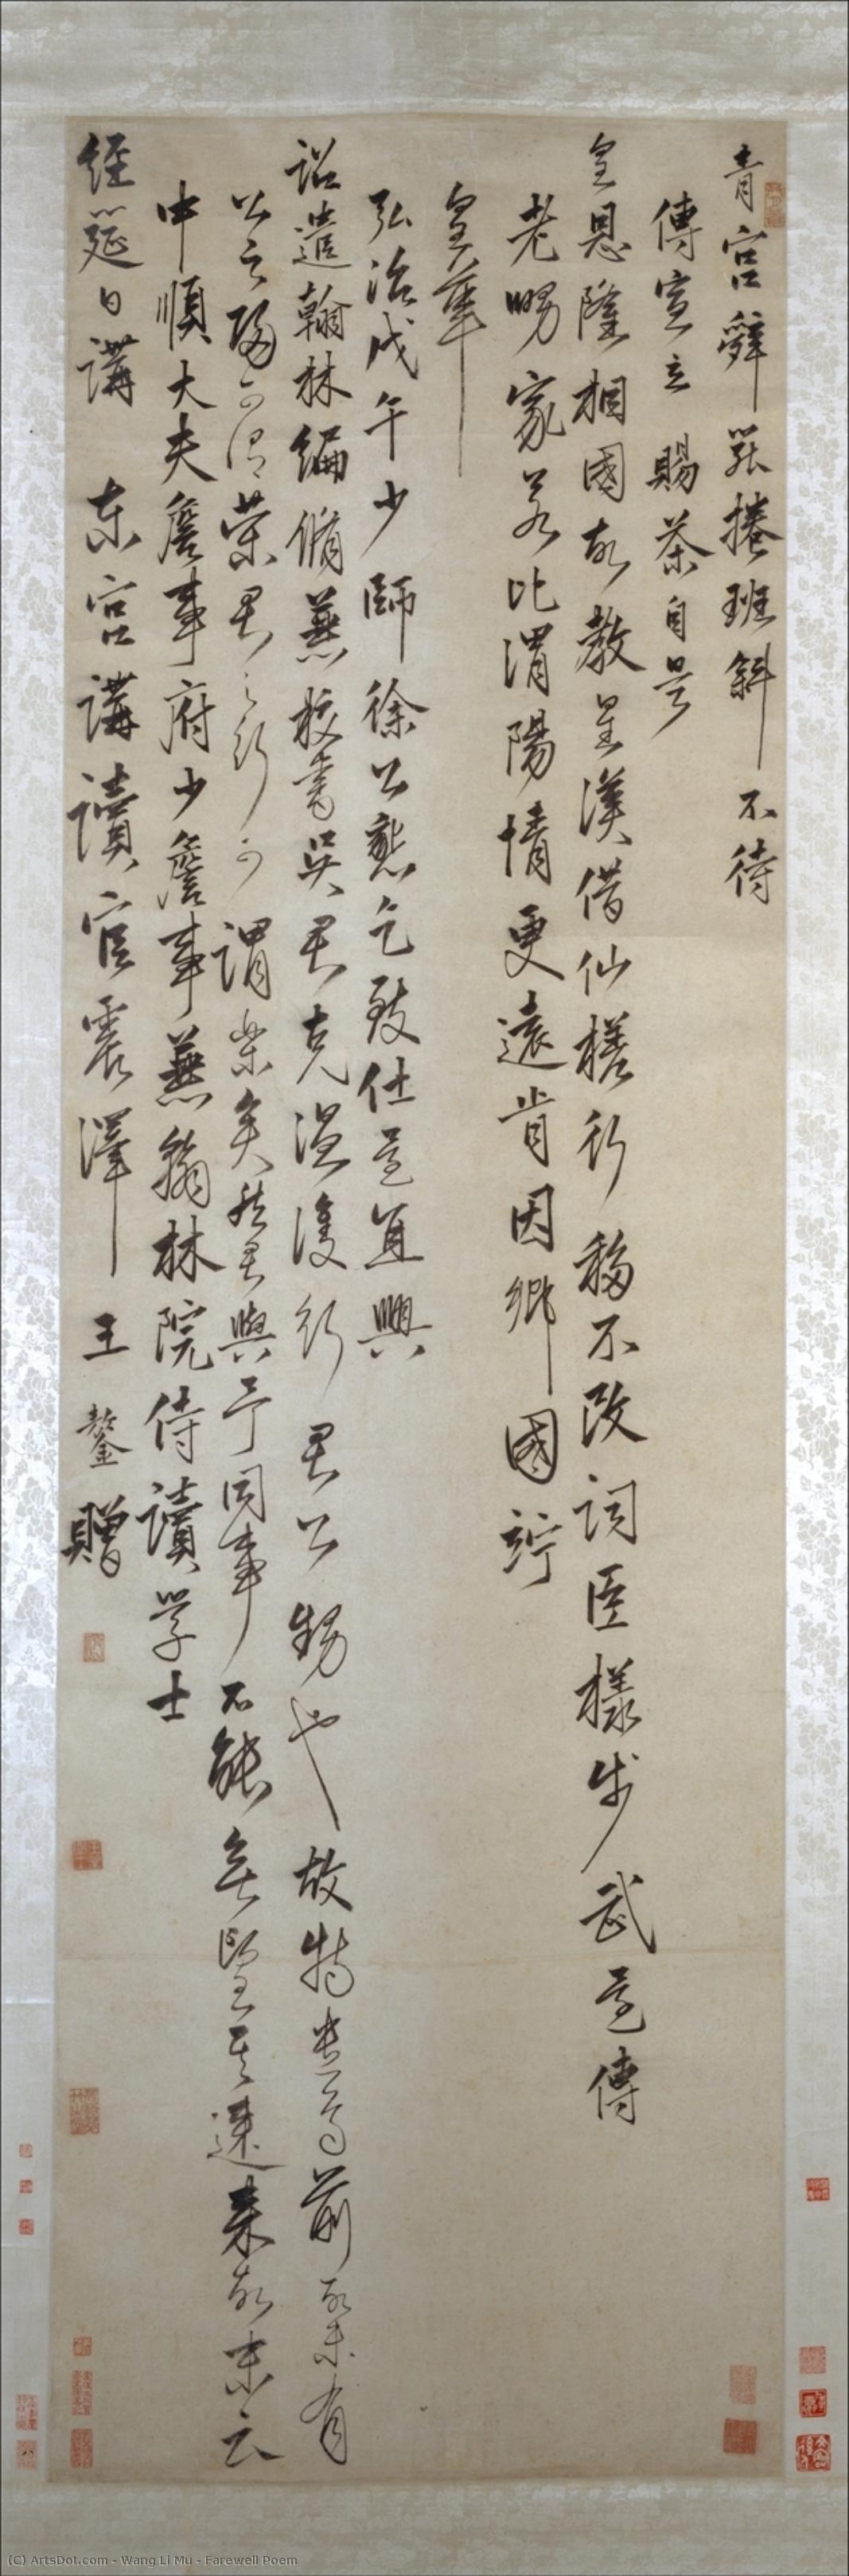 青宮辭罷捲班斜不待
傳宣立賜茶自是
皇恩隆相國故教星漢借仙槎行移不改詞臣樣步武還傳
老甥家若比渭陽情更遠肯因鄉國竚
皇華
弘治戊午少師徐公懇乞致仕還宜興
詔遣翰林編脩兼校書吳君克溫護行君公甥也故特遣焉前所未有
公之歸可謂榮君之行可謂樂矣然君與予同事不能無望其速來故末云
中順大夫詹事府少詹事兼翰林院侍讀學士
經筵日講東宮講讀官震澤王鏊贈
(C) ArtsDot.com - Wang Li Mu - Farewell Poem